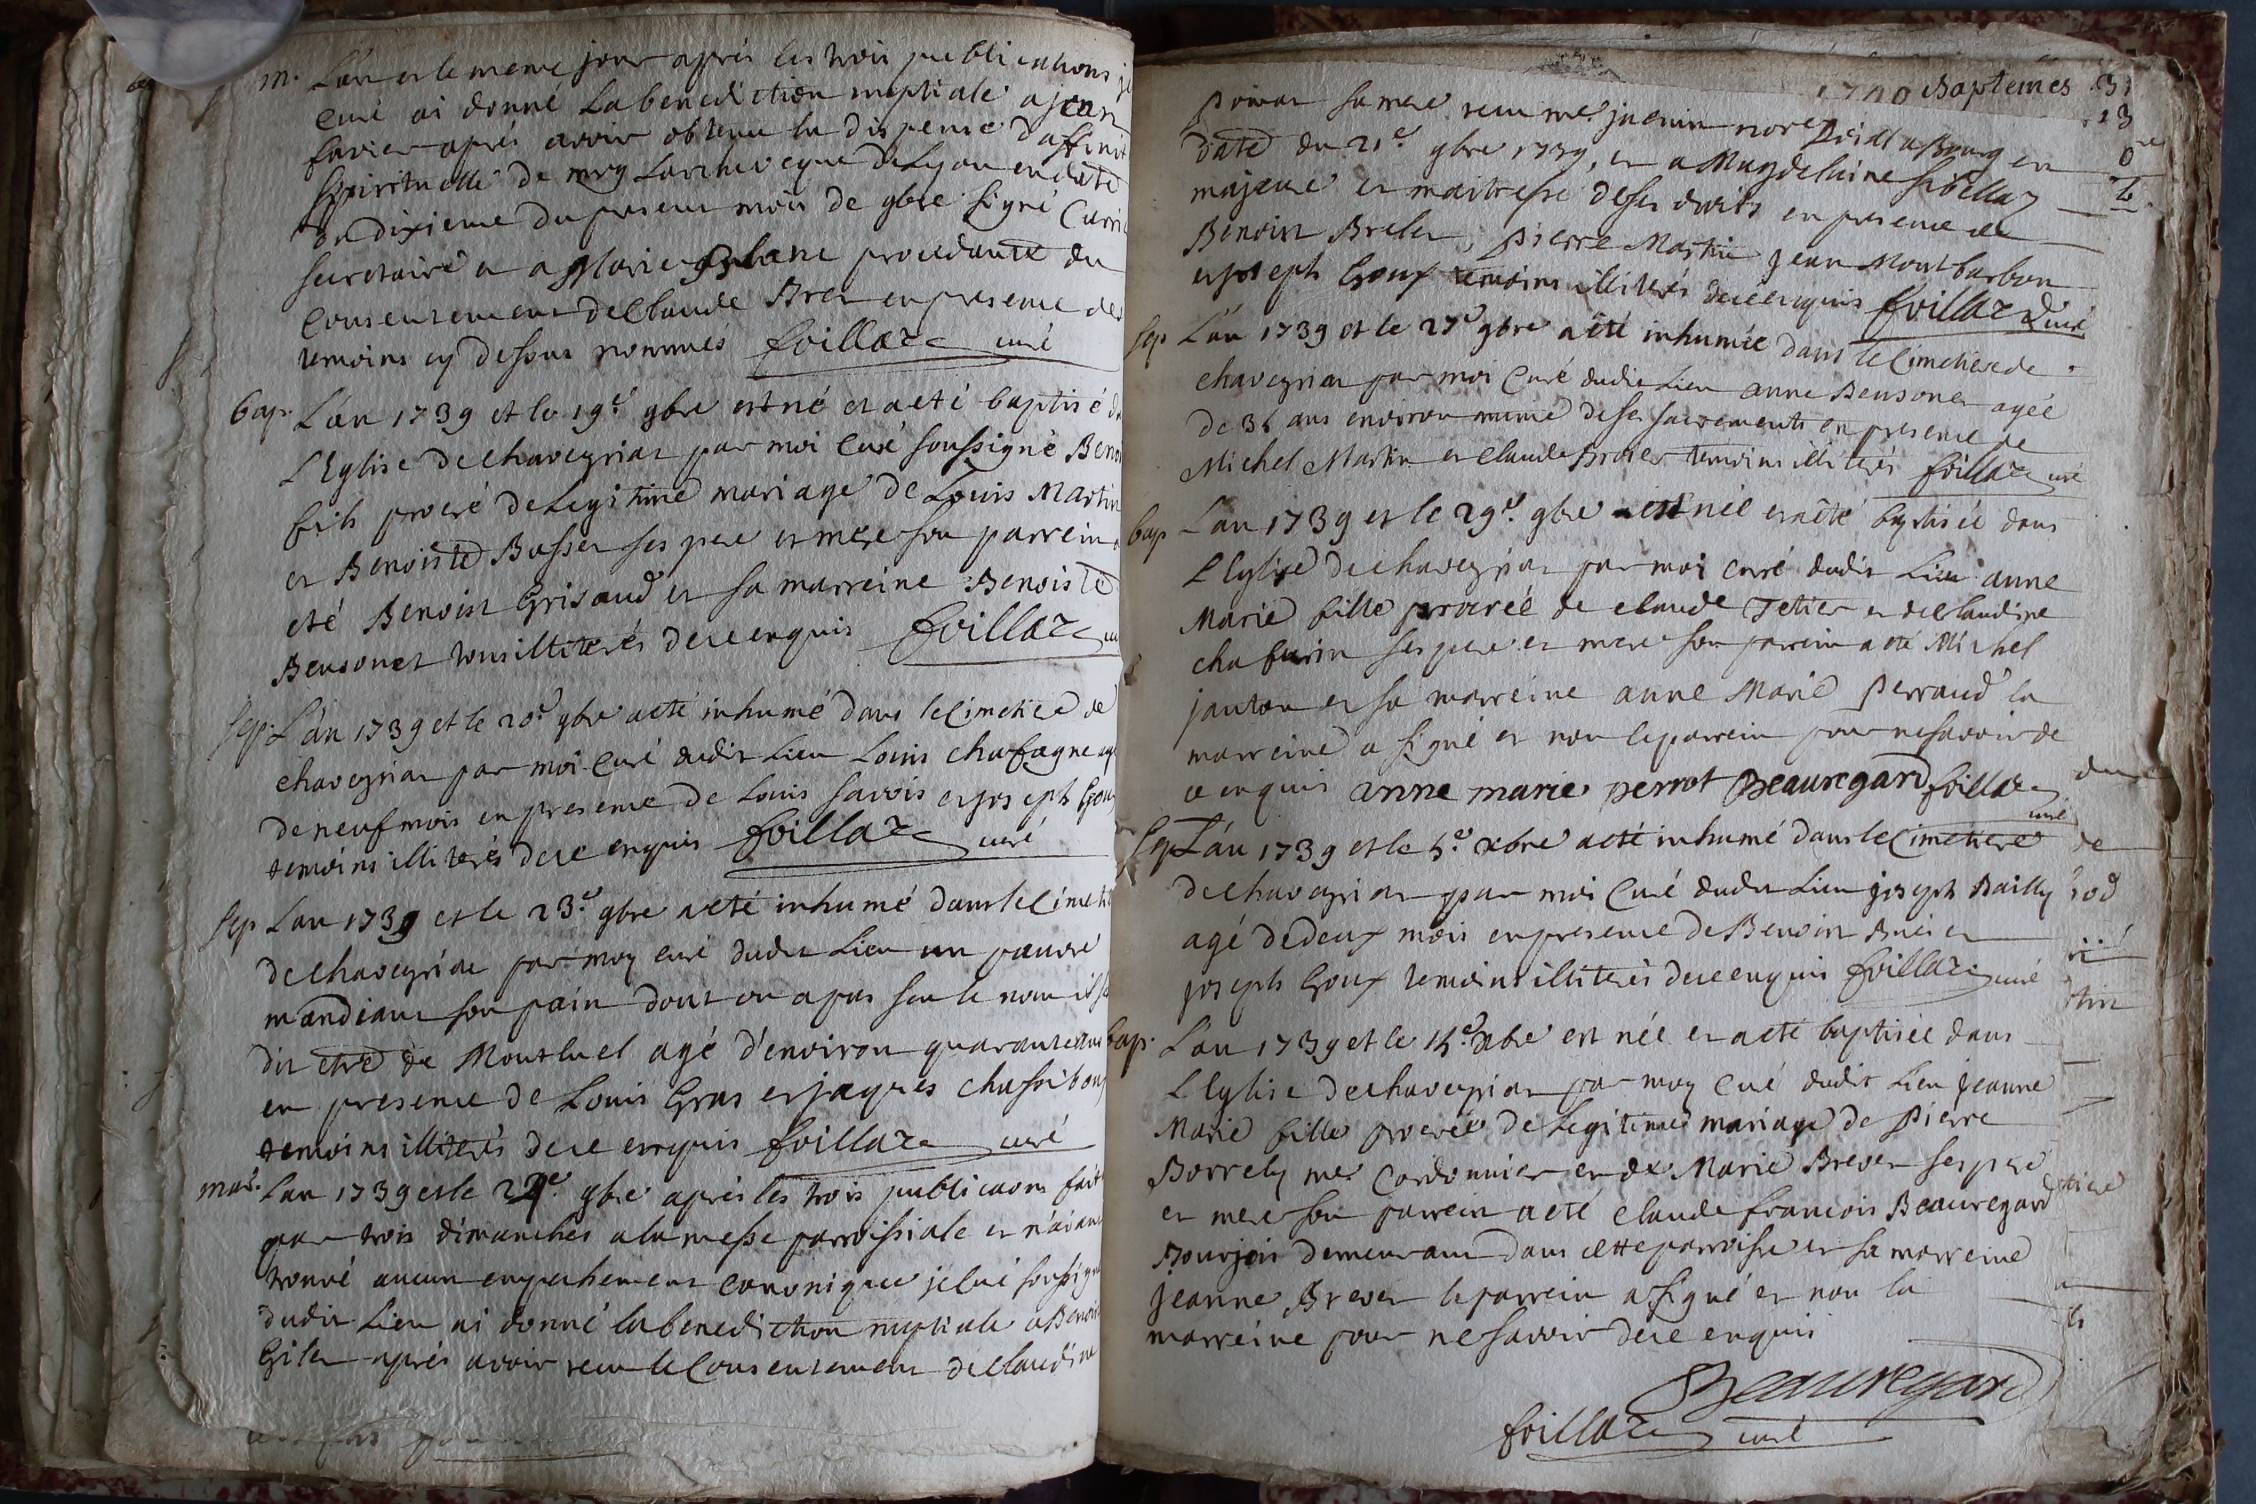 m. L'an et le meme jour aprés les trois publications je
curé ai donné la benediction nuptiale a jean
favier aprés avoir obtenu la dispense d'affinit
spirituelle de mrg Larcheveque de Lyon en date
du dixieme du present mois de 9bre signé
secretaire et a Marie procedante du
consentement de Claude Bret en presence des
temoins cy dessus nommés foillaz curé
bap. L'an 1739 et le 19.e 9bre est né et a eté baptisé da
L'Eglise de chaveyriat par moi Curé soussigné Benoi
fils procré de Legitime mariage de Louis Martin
et Benoiste Basset ses pere et mere son parrein a
eté Benoist Grisaud et sa marreine Benoiste
Bensonet tous illiterés de ce enquis foillaz cu
sep. L'an 1739 et le 20.e 9bre a eté inhumé dans le Cimetiere de
chaveyriat par moi Curé dudit Lieu Louis chafagne agé
de neuf mois en presence de Louis Savois et joseph Gou
temoins illiterés de ce enquis foillaz curé
sep L'an 1739 et le 23.e 9bre a eté inhumé dans le Cimeti
de chaveyriat par moy curé dudit Lieu un pauvre
mandiant son pain dont on a pas seu le nom
dit etre de Montluel agé d'environ quarante
en presence de Louis Gras et jaques chassibou
temoins illiterés de ce enquis foillaz curé
mar. L'an 1739 et le 9bre aprés les trois publicaons fait
par trois dimanches a la messe parroissiale et n'aiant
trouvé aucun empechement canonique je Curé soussign
dudit Lieu ai donné la benediction nuptiale a Benoi
Gilet aprés avoir receu le Consentement de Claudine
1740 Baptemes
sa mere receu me. juenin nore a Bourg en
date du 21.e 9bre 1739, et a Magdelaine Sibellaz
majeure et maitresse de ses droits en presence de
Benoist Brelet, Pierre Martin jean Montbarbon
et joseph Goux temoins illiterés de ce enquis foillaz Curé
sep L'an 1739 et le 27.e 9bre a eté inhumée dans le Cimetiere de
chaveyriat par moi Curé dudit Lieu anne Bensonet agée
de 36 ans environ munie de ses sacrements en presence de
Michel Martin et Claude Broier temoins illiterés foillaz curé
bap L'an 1739 et le 29.e 9bre est née et a eté baptisée dans
L'Eglise de chaveyriat par moi curé dudit Lieu anne
Marie fille procréé de claude Tetier et de Claudine
chafurin ses pere et mere son parrein a eté Michel
janton et sa marreine anne Marie Perraud la
marreine a signé et non le parrein pour ne savoir de
ce enquis anne marie perrot Beauregard foillaz
curé
sep L'an 1739 et le 5.e xbre a eté inhumé dans le Cimetiere
de chaveyriat par moi Curé dudit Lieu joseph Bailly
agé de deux mois en presence de Benoist Brier et
joseph Goux temoins illiterés de ce enquis foillaz curé
bap. L'an 1739 et le 15.e xbre est née et a eté baptisée dans
L'Eglise de chaveyriat par moy Curé dudit Lieu jeanne
Marie fille procréé de Legitime mariage de Pierre
Borrely me. Cordonnier et de Marie Brevet ses pere
et mere son parrein a eté Claude francois Beauregard
Bourjois demeurant dans cette parroisse et sa marreine
jeanne Brevet le parrein a signé et non la
marreine pour ne savoir de ce enquis
Beauregard
foillaz curé